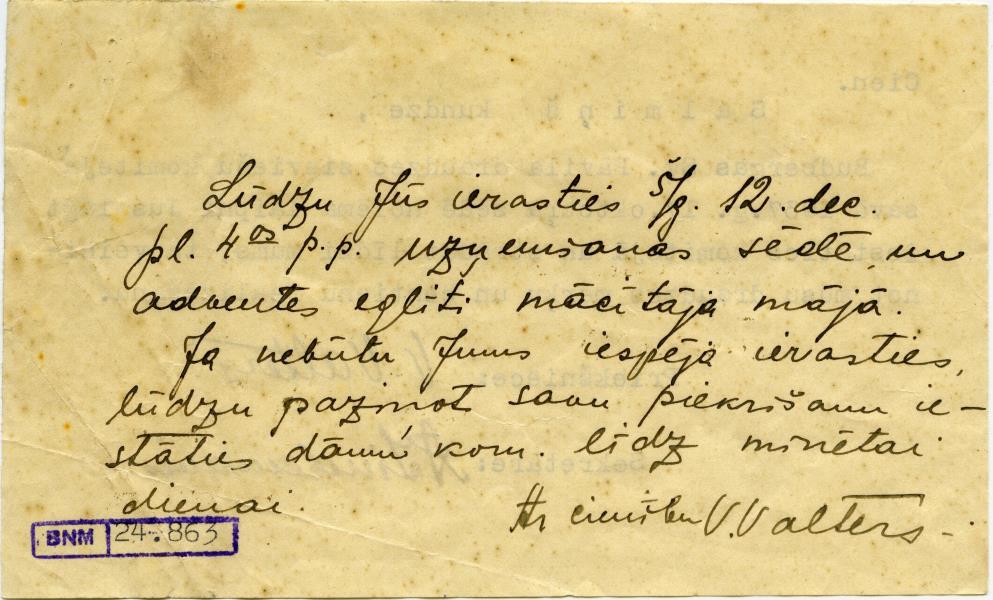 Lūdzu Jūs ierasties š/g. 12. dec.
pl. 4os p. p. uzņemšanas sēdē, un
adventes eglīti mācītāja mājā.
Ja nebūtu Jums iespēja ierasties,
lūdzu paziņot savu piekrišanu ie-
stāties dāmu kom. līdz minētai
dienai.
Ar cienību V. Valters.
BNM 24.863